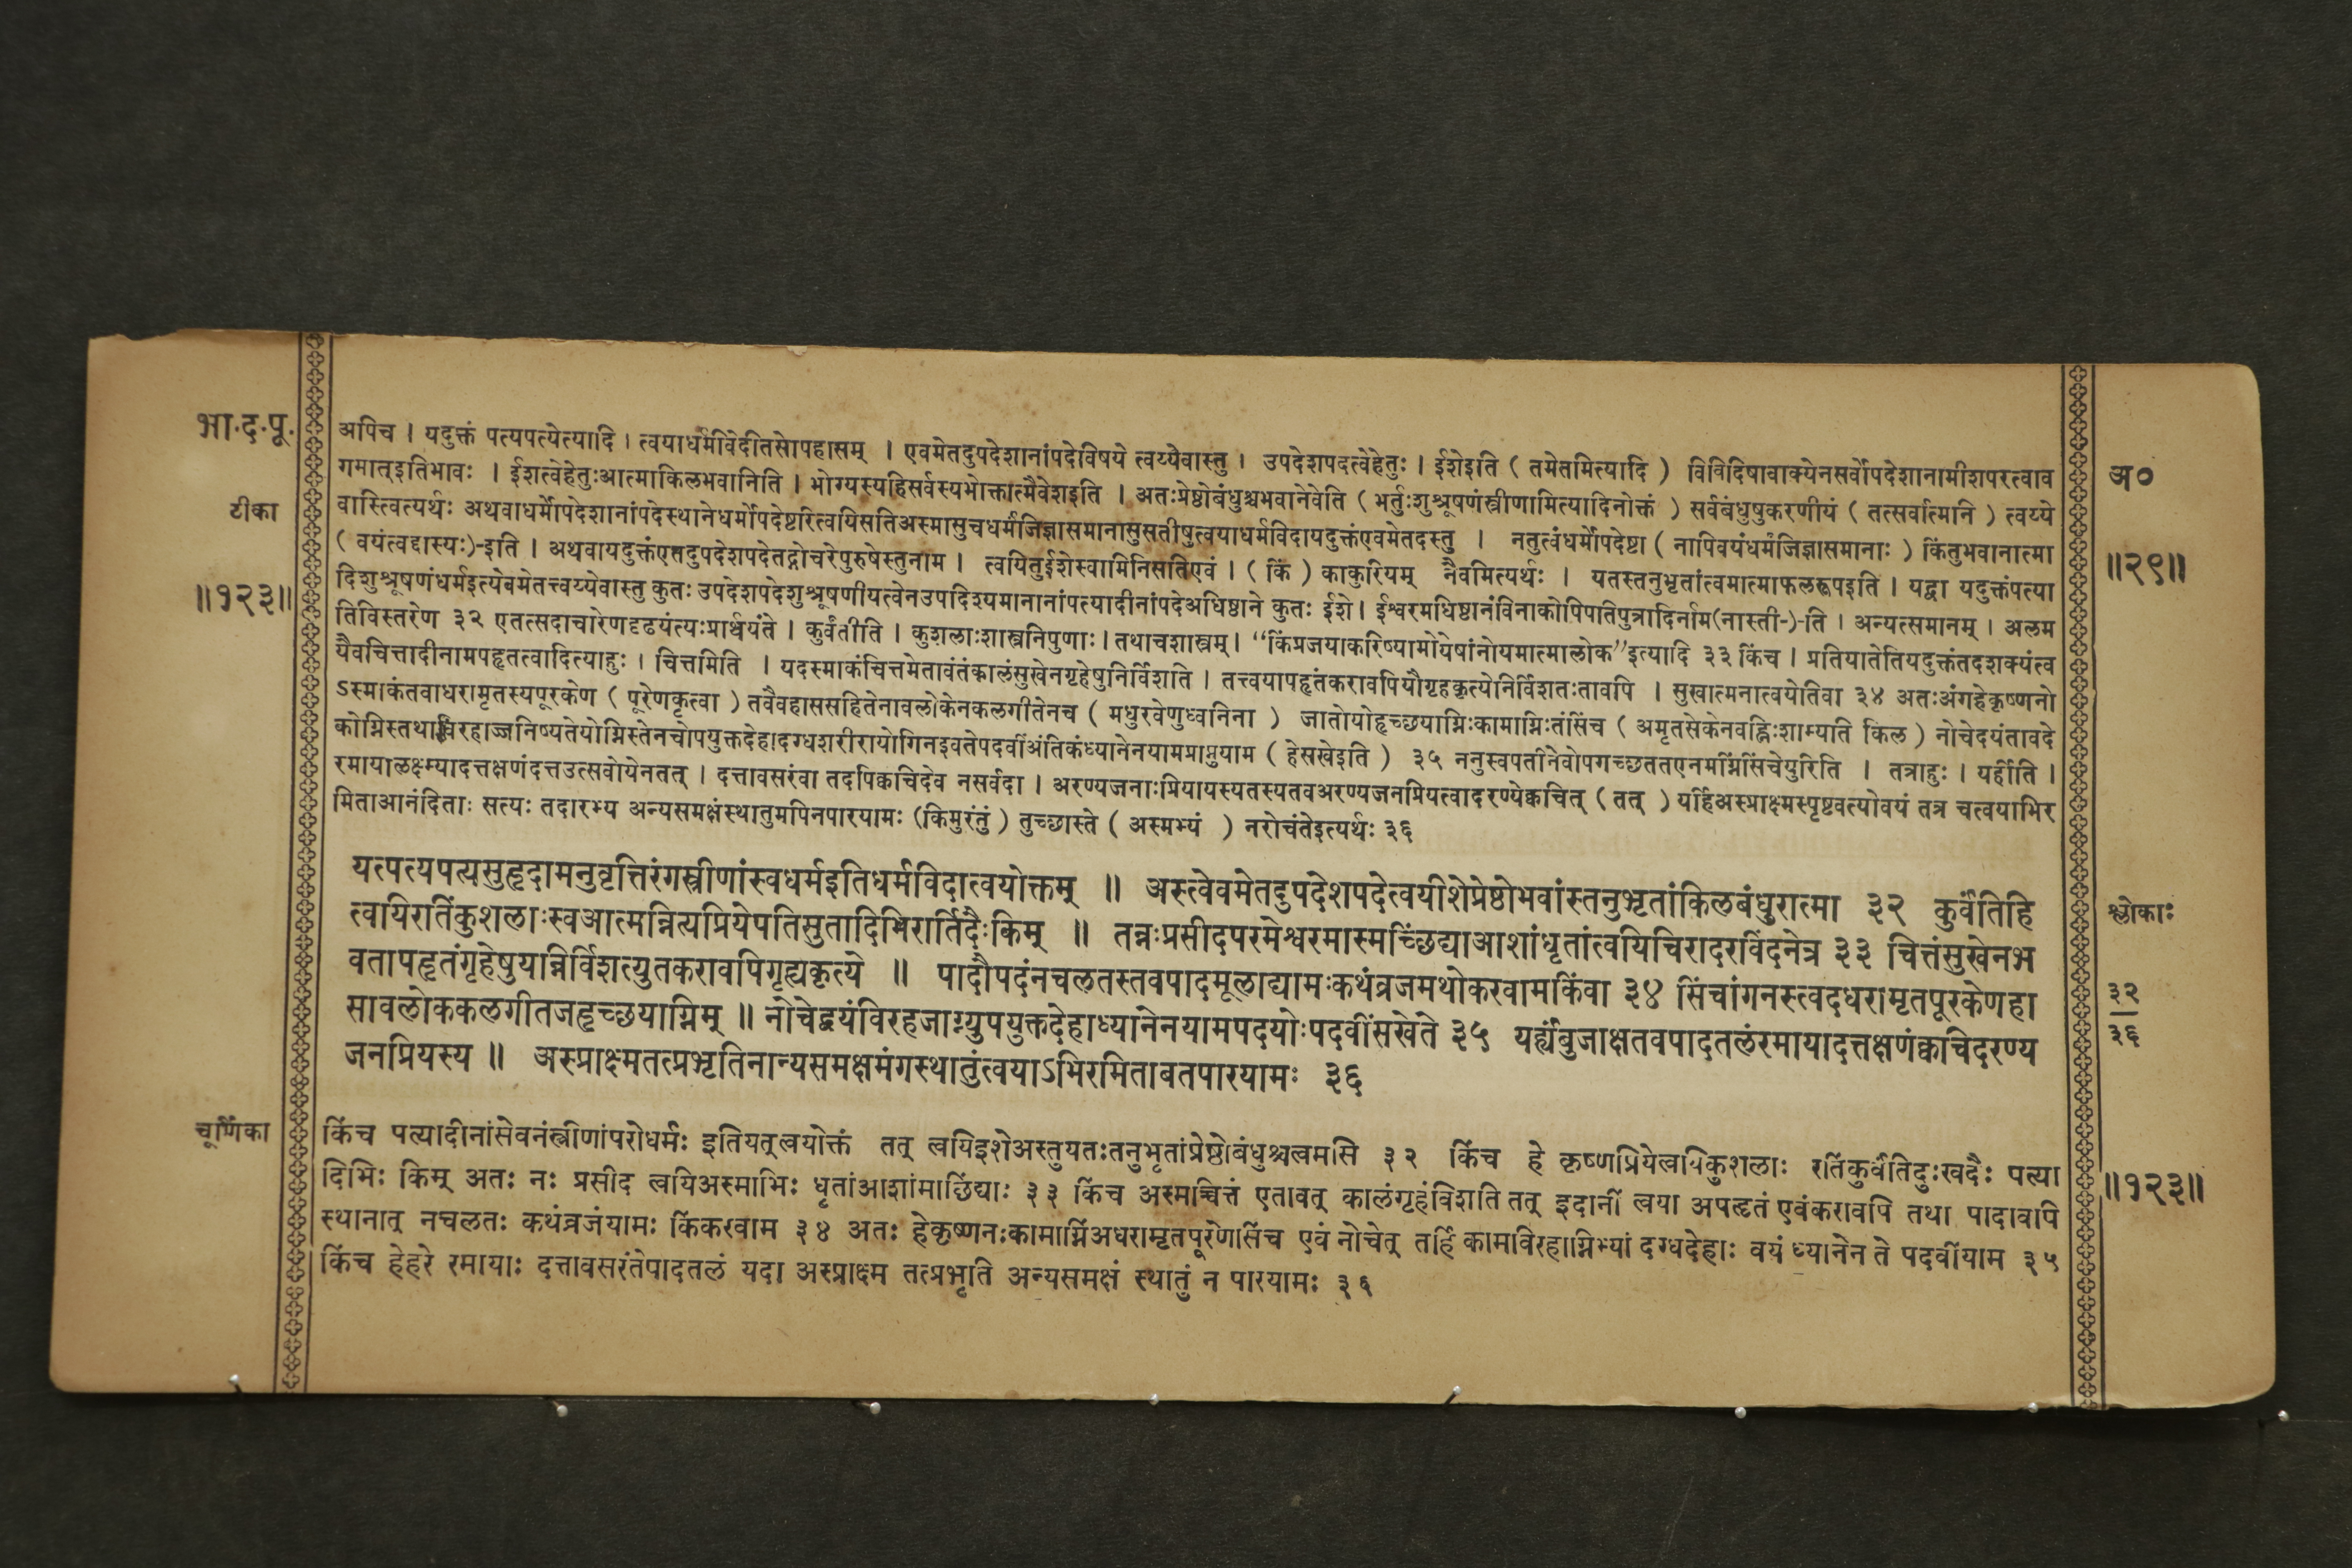 भा.द.पू.
अपिच । यदुक्तं पत्यपत्येत्यादि । त्वयाधर्मविदेतिसोपहासम् । एवमेतदुपदेशानांपदेविषये त्वय्येवास्तु । उपदेशपदत्वेहेतुः । ईशेइति ( तमेतमित्यादि ) विविदिषावाक्येनसर्वोपदेशानामीशपरत्वाव
अ०
गमात्इतिभावः । ईशत्वेहेतुःआत्माकिलभवानिति । भोग्यस्यहिसर्वस्यभोक्तात्मैवेशइति । अतःप्रेष्ठोबंधुश्चभवानेवेति ( भर्तुःशुश्रूषणंस्त्रीणामित्यादिनोक्तं ) सर्वबंधुषुकरणीयं ( तत्सर्वात्मनि ) त्वय्ये
टीका
वास्त्वित्यर्थः अथवाधर्मोपदेशानांपदेस्थानेधर्मोपदेष्टरित्वयिसतिअस्मासुचधर्मंजिज्ञासमानासुसतीषुत्वयाधर्मविदायदुक्तंएवमेतदस्तु । नतुत्वंधर्मोपदेष्टा ( नापिवयंधर्मंजिज्ञासमानाः ) किंतुभवानात्मा
( वयंत्वद्दास्यः)-इति । अथवायदुक्तंएतदुपदेशपदेतद्गोचरेपुरुषेस्तुनाम । त्वयितुईशेस्वामिनिसतिएवं । ( किं ) काकुरियम् नैवमित्यर्थः । यतस्तनुभृतांत्वमात्माफलरूपइति । यद्वा यदुक्तंपत्या
॥२९॥
॥१२३॥
दिशुश्रूषणंधर्मइत्येवमेतत्त्वय्येवास्तु कुतः उपदेशपदेशुश्रूषणीयत्वेनउपदिश्यमानानांपत्यादीनांपदेअधिष्ठाने कुतः ईशे । ईश्वरमधिष्ठानंविनाकोपिपतिपुत्रादिर्नाम(नास्ती-)-ति । अन्यत्समानम् । अलम
तिविस्तरेण ३२ एतत्सदाचारेणदृढयंत्यःप्रार्थयंते । कुर्वंतीति । कुशलाःशास्त्रनिपुणाः । तथाचशास्त्रम् । “किंप्रजयाकरिष्यामोयेषांनोयमात्मालोक”इत्यादि ३३ किंच । प्रतियातेतियदुक्तंतदशक्यंत्व
यैवचित्तादीनामपहृतत्वादित्याहुः । चित्तमिति । यदस्माकंचित्तमेतावंतंकालंसुखेनगृहेषुनिर्विशति । तत्त्वयापहृतंकरावपियौगृहकृत्येनिर्विशतःतावपि । सुखात्मनात्वयेतिवा ३४ अतःअंगहेकृष्णनो
ऽस्माकंतवाधरामृतस्यपूरकेण ( पूरेणकृत्वा ) तवैवहाससहितेनावलोकेनकलगीतेनच ( मधुरवेणुध्वनिना ) जातोयोहृच्छयाग्निःकामाग्निःतंसिंच ( अमृतसेकेनवह्निःशाम्यति किल ) नोचेदयंतावदे
कोग्निस्तथाविरहाज्जनिष्यतेयोग्निस्तेनचोपयुक्तदेहादग्धशरीरायोगिनइवतेपदवींअंतिकंध्यानेनयामप्राप्नुयाम ( हेसखेइति ) ३५ ननुस्वपतीनेवोपगच्छततएनमग्निंसिंचेयुरिति । तत्राहुः । यर्हीति ।
रमायालक्ष्म्यादत्तक्षणंदत्तउत्सवोयेनतत् । दत्तावसरंवा तदपिक्वचिदेव नसर्वदा । अरण्यजनाःप्रियायस्यतस्यतवअरण्यजनप्रियत्वादरण्येक्वचित् ( तत् ) यर्हिअस्प्राक्ष्मस्पृष्टवत्योवयं तत्र चत्वयाभिर
मिताआनंदिताः सत्यः तदारभ्य अन्यसमक्षंस्थातुमपिनपारयामः (किमुरंतुं ) तुच्छास्ते ( अस्मभ्यं ) नरोचंतेइत्यर्थः ३६
यत्पत्यपत्यसुहृदामनुवृत्तिरंगस्त्रीणांस्वधर्मइतिधर्मविदात्वयोक्तम् ॥ अस्त्वेवमेतदुपदेशपदेत्वयीशेप्रेष्ठोभवांस्तनुभृतांकिलबंधुरात्मा ३२ कुर्वंतिहि
श्लोकाः
त्वयिरतिंकुशलाःस्वआत्मन्नित्यप्रियेपतिसुतादिभिरार्तिदैःकिम् ॥ तन्नःप्रसीदपरमेश्वरमास्मच्छिंद्याआशांधृतांत्वयिचिरादरविंदनेत्र ३३ चित्तंसुखेनभ
वतापहृतंगृहेषुयान्निर्विशत्युतकरावपिगृह्यकृत्ये ॥ पादौपदंनचलतस्तवपादमूलाद्यामःकथंव्रजमथोकरवामकिंवा ३४ सिंचांगनस्त्वदधरामृतपूरकेणहा
३२
३६
सावलोककलगीतजहृच्छयाग्निम् ॥ नोचेद्वयंविरहजाग्न्युपयुक्तदेहाध्यानेनयामपदयोःपदवींसखेते ३५ यर्ह्यंबुजाक्षतवपादतलंरमायादत्तक्षणंक्वचिदरण्य
जनप्रियस्य ॥ अस्प्राक्ष्मतत्प्रभृतिनान्यसमक्षमंगस्थातुंत्वयाऽभिरमिताबतपारयामः ३६
चूर्णिका
किंच पत्यादीनांसेवनंस्त्रीणांपरोधर्मः इतियत्त्वयोक्तं तत् त्वयिइशेअस्तुयतःतनुभृतांप्रेष्ठोबंधुश्चत्वमसि ३२ किंच हे कृष्णप्रियेत्वयिकुशलाः रतिंकुर्वंतिदुःखदैः पत्या
॥१२३॥
दिभिः किम् अतः नः प्रसीद त्वयिअस्माभिः धृतांआशांमाछिंद्याः ३३ किंच अस्माच्चित्तं एतावत् कालंगृहंविशति तत् इदानीं त्वया अपहृतं एवंकरावपि तथा पादावपि
स्थानात् नचलतः कथंव्रजंयामः किंकरवाम ३४ अतः हेकृष्णनःकामाग्निंअधरामृतपूरेणसिंच एवं नोचेत् तर्हि कामविरहाग्निभ्यां दग्धदेहाः वयं ध्यानेन ते पदवींयाम ३५
किंच हेहरे रमायाः दत्तावसरंतेपादतलं यदा अस्प्राक्ष्म तत्प्रभृति अन्यसमक्षं स्थातुं न पारयामः ३६